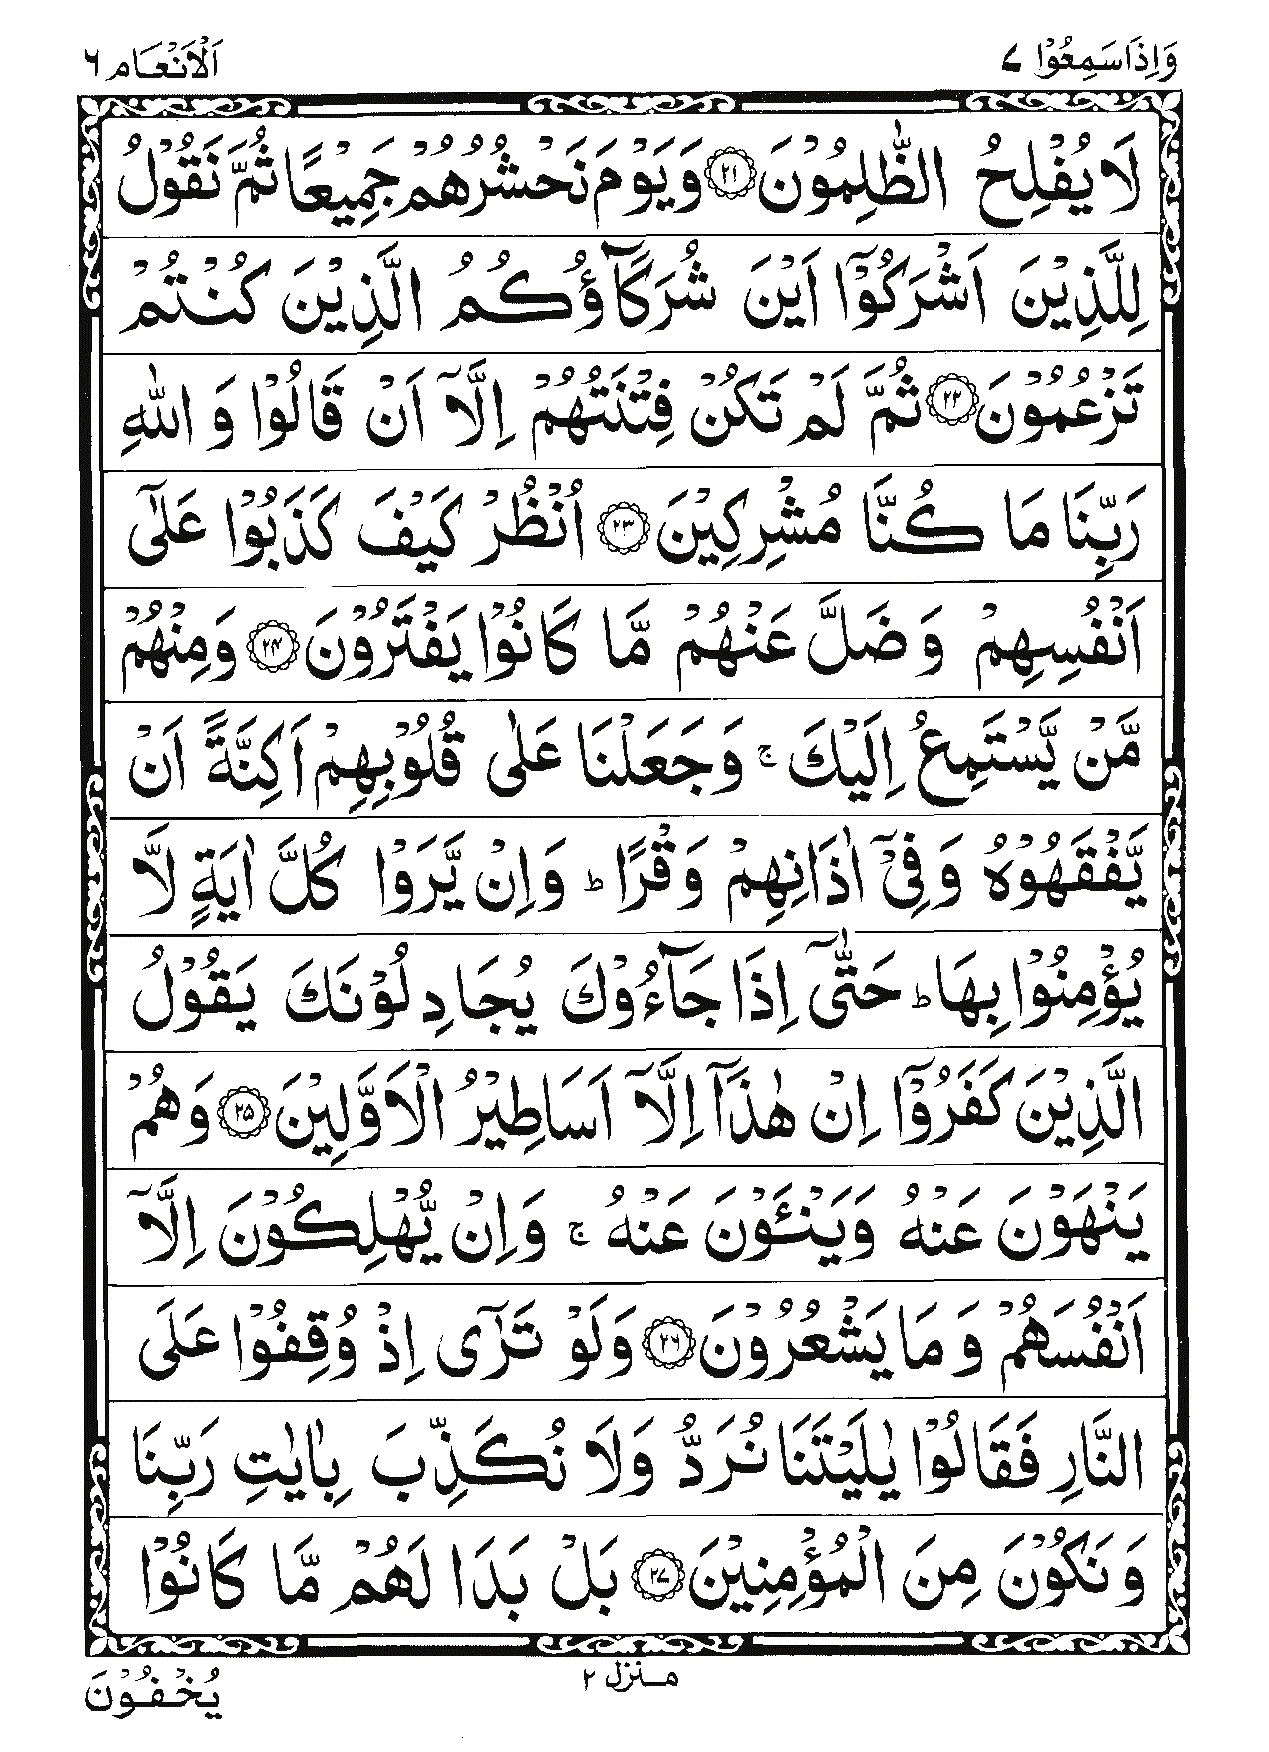 وَاِذَا سَمِعُوْا ۷
اَلْاَنْعَام ۶
لَا يُفْلِحُ الظّٰلِمُوْنَ ۲۱ وَيَوْمَ نَحْشُرُهُمْ جَمِيْعًا ثُمَّ نَقُوْلُ
لِلَّذِيْنَ اَشْرَكُوْٓا اَيْنَ شُرَكَآؤُكُمُ الَّذِيْنَ كُنْتُمْ
تَزْعُمُوْنَ ۲۲ ثُمَّ لَمْ تَكُنْ فِتْنَتُهُمْ اِلَّآ اَنْ قَالُوْا وَ اللّٰهِ
رَبِّنَا مَا كُنَّا مُشْرِكِيْنَ ۲۳ اُنْظُرْ كَيْفَ كَذَبُوْا عَلٰٓى
اَنْفُسِهِمْ وَ ضَلَّ عَنْهُمْ مَّا كَانُوْا يَفْتَرُوْنَ ۲۴ وَمِنْهُمْ
مَّنْ يَّسْتَمِعُ اِلَيْكَ ۚ وَجَعَلْنَا عَلٰى قُلُوْبِهِمْ اَكِنَّةً اَنْ
يَّفْقَهُوْهُ وَفِيْٓ اٰذَانِهِمْ وَقْرًا ؕ وَاِنْ يَّرَوْا كُلَّ اٰيَةٍ لَّا
يُؤْمِنُوْا بِهَا ؕ حَتّٰٓى اِذَا جَآءُوْكَ يُجَادِلُوْنَكَ يَقُوْلُ
الَّذِيْنَ كَفَرُوْٓا اِنْ هٰذَآ اِلَّآ اَسَاطِيْرُ الْاَوَّلِيْنَ ۲۵ وَهُمْ
يَنْهَوْنَ عَنْهُ وَيَنْـَٔوْنَ عَنْهُ ۚ وَاِنْ يُّهْلِكُوْنَ اِلَّآ
اَنْفُسَهُمْ وَ مَا يَشْعُرُوْنَ ۲۶ وَلَوْ تَرٰٓى اِذْ وُقِفُوْا عَلَى
النَّارِ فَقَالُوْا يٰلَيْتَنَا نُرَدُّ وَلَا نُكَذِّبَ بِاٰيٰتِ رَبِّنَا
وَ نَكُوْنَ مِنَ الْمُؤْمِنِيْنَ ۲۷ بَلْ بَدَا لَهُمْ مَّا كَانُوْا
منزل ۲
يُخْفُوْنَ